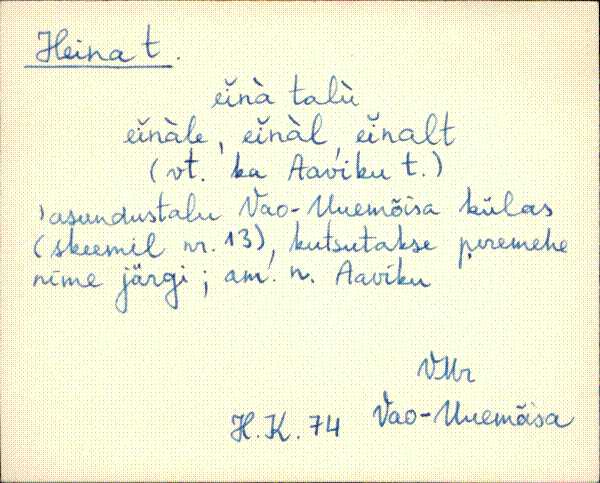 Heina t.
eĭnà talù
eĭnàle, eĭnàl, eĭnalt
(vt. ka Aaviku t.)
asundustalu Vao-Uuemõisa külas
(skeemil nr. 13), kutsutakse peremehe
nime järgi; am. n. Aaviku
VMr
H.K. 74 Vao-Uuemõisa